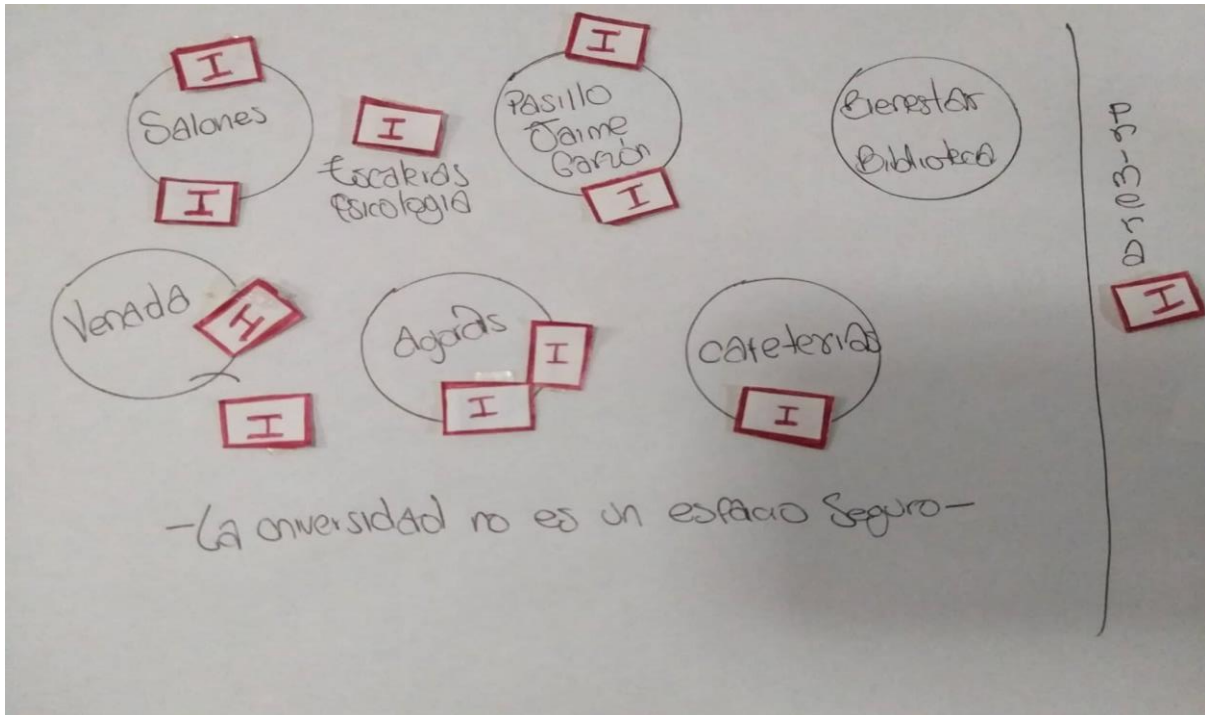 I
Salones
I
I
Escaleras
Psicologia
I
Pasillo
Jaime
Garzón
I
Bienestar
Biblioteca
Venada
I
I
Agoras
I
I
Cafeterias
I
I
-La universidad no es un espacio Seguro-